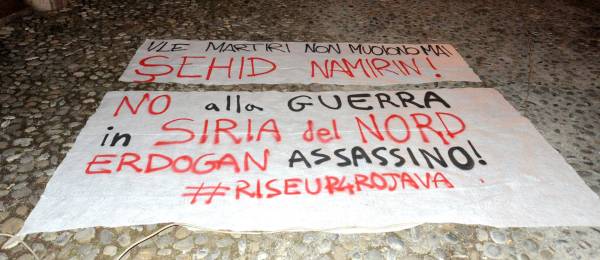 MARTIRI NON MUOIONO MAI
ŞEHID NAMIRIN!
NO alla GUERRA
in SIRIA del NORD
ERDOGAN ASSASSINO!
#RISEUP4ROJAVA